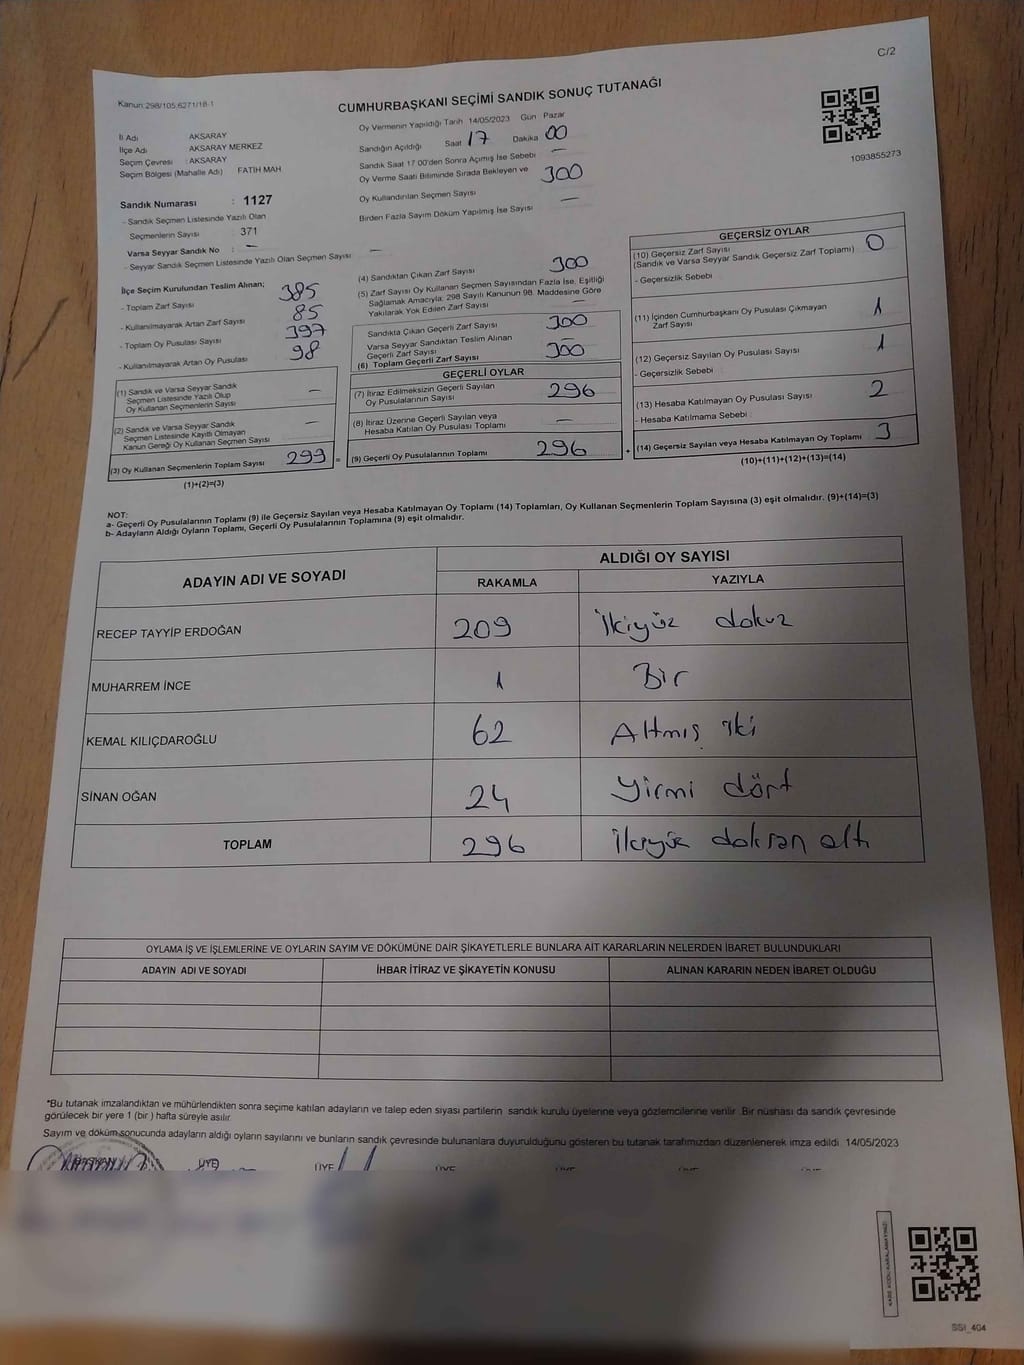 C/2
Kanun:298/105,6271/18-1
CUMHURBAŞKANI SEÇİMİ SANDIK SONUÇ TUTANAĞI
1093855273
İl Adı AKSARAY
İlçe Adı AKSARAY MERKEZ
Seçim Çevresi : AKSARAY
Seçim Bölgesi (Mahalle Adı) FATİH MAH
Sandık Numarası : 1127
- Sandık Seçmen Listesinde Yazılı Olan
Seçmenlerin Sayısı : 371
Varsa Seyyar Sandık No : —
- Seyyar Sandık Seçmen Listesinde Yazılı Olan Seçmen Sayısı —
İlçe Seçim Kurulundan Teslim Alınan;
- Toplam Zarf Sayısı 385
- Kullanılmayarak Artan Zarf Sayısı 85
- Toplam Oy Pusulası Sayısı 397
- Kullanılmayarak Artan Oy Pusulası 98
(1) Sandık ve Varsa Seyyar Sandık
Seçmen Listesinde Yazılı Olup
Oy Kullanan Seçmenlerin Sayısı —
(2) Sandık ve Varsa Seyyar Sandık
Seçmen Listesinde Kayıtlı Olmayan
Kanun Gereği Oy Kullanan Seçmen Sayısı —
(3) Oy Kullanan Seçmenlerin Toplam Sayısı 299 =
(1)+(2)=(3)
Oy Vermenin Yapıldığı Tarih 14/05/2023 Gün Pazar
Sandığın Açıldığı Saat 17 Dakika 00
Sandık Saat 17 00'den Sonra Açımış İse Sebebi —
Oy Verme Saati Bitiminde Sırada Bekleyen ve 300
Oy Kullandırılan Seçmen Sayısı
Birden Fazla Sayım Döküm Yapılmış İse Sayısı —
(4) Sandıktan Çıkan Zarf Sayısı 300
(5) Zarf Sayısı Oy Kullanan Seçmen Sayısından Fazla İse, Eşitliği
Sağlamak Amacıyla; 298 Sayılı Kanunun 98. Maddesine Göre
Yakılarak Yok Edilen Zarf Sayısı —
Sandıkta Çıkan Geçerli Zarf Sayısı 300
Varsa Seyyar Sandıktan Teslim Alınan
Geçerli Zarf Sayısı
(6) Toplam Geçerli Zarf Sayısı 300
GEÇERLİ OYLAR
(7) İtiraz Edilmeksizin Geçerli Sayılan
Oy Pusulasının Sayısı 296
(8) İtiraz Üzerine Geçerli Sayılan veya
Hesaba Katılan Oy Pusulası Toplamı —
(9) Geçerli Oy Pusulalarının Toplamı 296 +
GEÇERSİZ OYLAR
(10) Geçersiz Zarf Sayısı 0
(Sandık ve Varsa Seyyar Sandık Geçersiz Zarf Toplamı)
- Geçersizlik Sebebi :
(11) İçinden Cumhurbaşkanı Oy Pusulası Çıkmayan
Zarf Sayısı 1
(12) Geçersiz Sayılan Oy Pusulası Sayısı 1
- Geçersizlik Sebebi
(13) Hesaba Katılmayan Oy Pusulası Sayısı 2
- Hesaba Katılmama Sebebi :
(14) Geçersiz Sayılan veya Hesaba Katılmayan Oy Toplamı 3
(10)+(11)+(12)+(13)=(14)
NOT:
a- Geçerli Oy Pusulalarının Toplamı (9) ile Geçersiz Sayılan veya Hesaba Katılmayan Oy Toplamı (14) Toplamları, Oy Kullanan Seçmenlerin Toplam Sayısına (3) eşit olmalıdır. (9)+(14)=(3)
b- Adayların Aldığı Oyların Toplamı, Geçerli Oy Pusulalarının Toplamına (9) eşit olmalıdır.
ADAYIN ADI VE SOYADI ALDIĞI OY SAYISI
RAKAMLA YAZIYLA
RECEP TAYYİP ERDOĞAN 209 İkiyüz dokuz
MUHARREM İNCE 1 Bir
KEMAL KILIÇDAROĞLU 62 Altmış iki
SİNAN OĞAN 24 Yirmi dört
TOPLAM 296 İkiyüz doksan altı
OYLAMA İŞ VE İŞLEMLERİNE VE OYLARIN SAYIM VE DÖKÜMÜNE DAİR ŞİKAYETLERLE BUNLARA AİT KARARLARIN NELERDEN İBARET BULUNDUKLARI
ADAYIN ADI VE SOYADI İHBAR İTİRAZ VE ŞİKAYETİN KONUSU ALINAN KARARIN NEDEN İBARET OLDUĞU
*Bu tutanak imzalandıktan ve mühürlendikten sonra seçime katılan adayların ve talep eden siyasi partilerin sandık kurulu üyelerine veya gözlemcilerine verilir. Bir nüshası da sandık çevresinde
görülecek bir yere 1 (bir ) hafta süreyle asılır.
Sayım ve döküm sonucunda adayların aldığı oyların sayılarını ve bunların sandık çevresinde bulunanlara duyurulduğunu gösteren bu tutanak tarafımızdan düzenlenerek imza edildi 14/05/2023
BAŞKAN ÜYE ÜYE ÜYE ÜYE ÜYE ÜYE
KARE KODU KARALAMAYINIZ!
SSİ_404